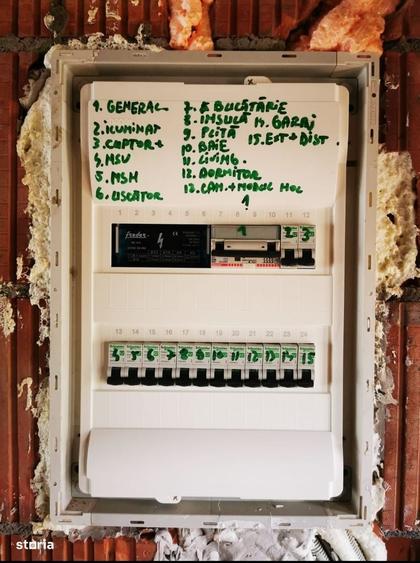 1. GENERAL
2. ILUMINAT
3. CUPTOR +
4. MSV
5. MSH
6. USCĂTOR
7. BUCĂTĂRIE
8. INSULĂ
9. PLITĂ
10. BAIE
11. LIVING.
12. DORMITOR
13. CAM. + MODUL HOL
14. GARAJ
15. EXT + DIST
1
1 2 3 4 5 6 7 8 9 10 11 12
1 2 3
13 14 15 16 17 18 19 20 21 22 23 24
4 5 6 7 8 9 10 11 12 13 14 15
storia